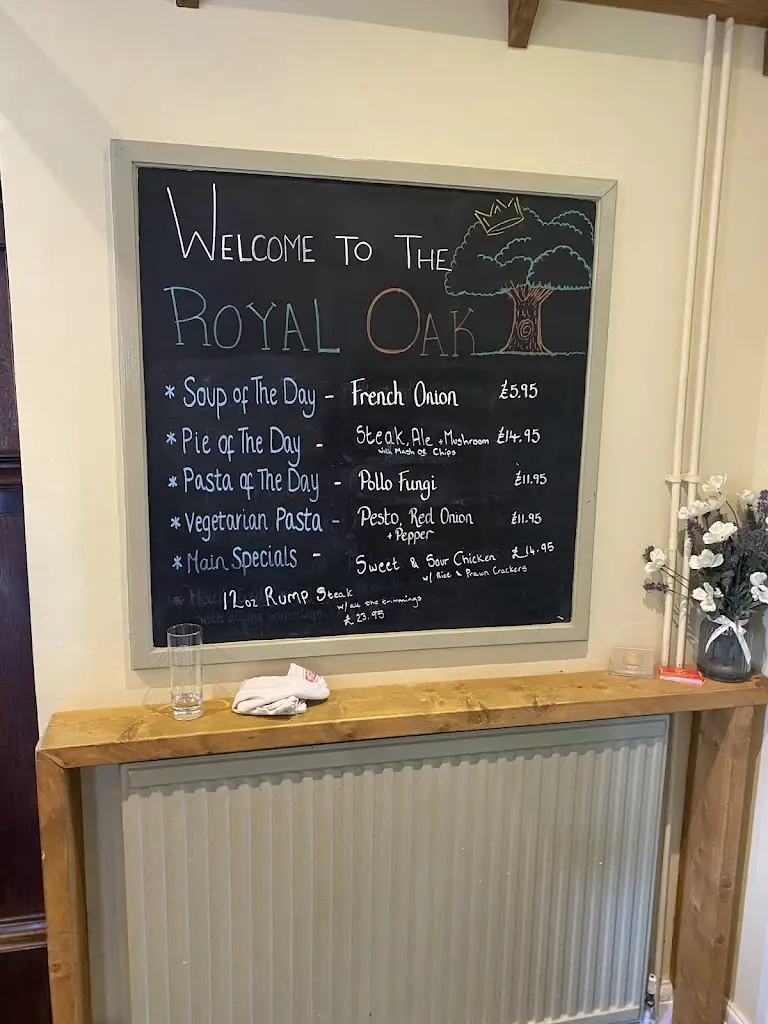 WELCOME TO THE
ROYAL OAK
* Soup of The Day - French Onion £5.95
* Pie of The Day - Steak, Ale + Mushroom £14.95
with Mash or Chips
* Pasta of The Day - Pollo Fungi £11.95
* Vegetarian Pasta - Pesto, Red Onion £11.95
+ Pepper
* Main Specials - Sweet & Sour Chicken £14.95
w/ Rice & Prawn Crackers
12oz Rump Steak
w/ all the trimmings
£23.95